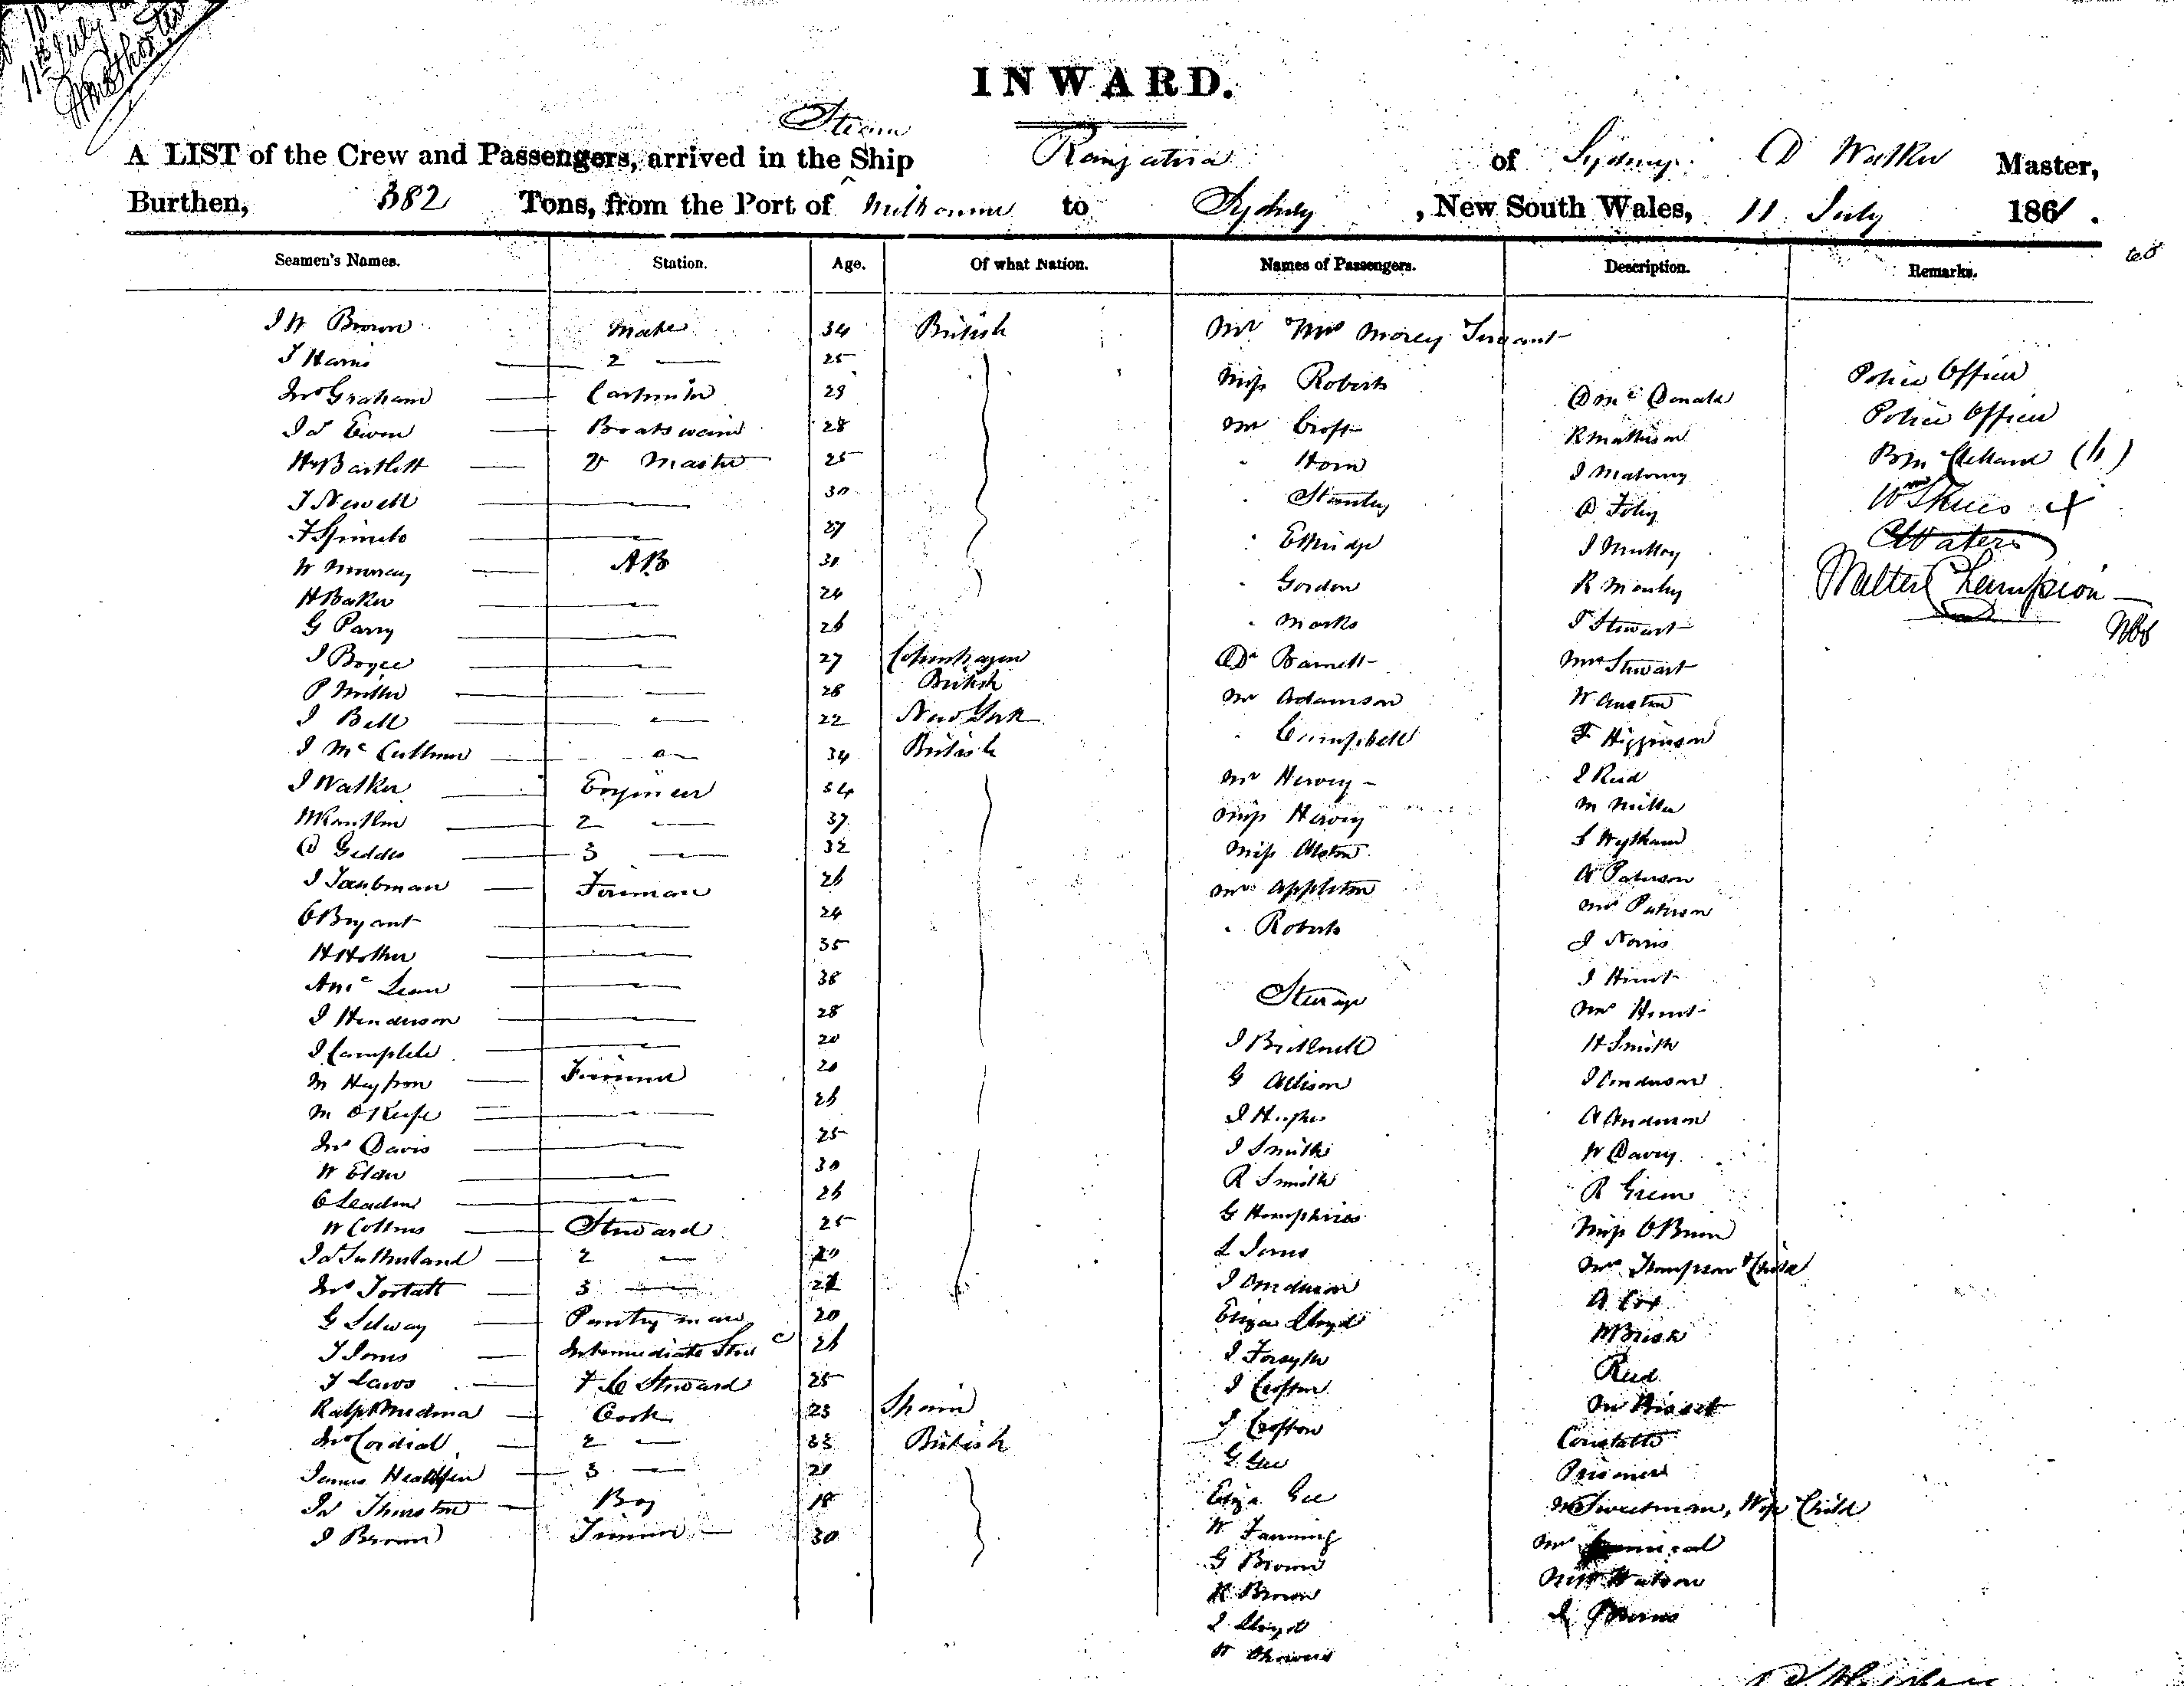 11th July
INWARD.
Steam
A LIST of the Crew and Passengers, arrived in the Ship Rangatira of Sydney D Walker Master,
Burthen, 382 Tons, from the Port of Melbourne to Sydney, New South Wales, 11 July 1861.
Seamen's Names. Station. Age. Of what Nation. Names of Passengers. Description. Remarks.
J W Brown Mate 34 British
T Harris 2 — 25
Jno Graham Carpenter 29
Jas Ewen Boatswain 28
Hy Bartlett Master 25
T Newell — 30
— 27
W Murray AB 30
H Baker — 24
G Parry — 26
J Boyce — 27 Copenhagen
P Miller — 28 British
J Bell — 22 New York
J McCallum — 34 British
J Walker Engineer 34
2 — 37
D Geddes 3 — 32
J Taubman Fireman 26
C Bryant — 24
H Hother — 35
A McLean — 38
J Henderson — 28
J Campbell — 20
Fireman 20
M O'Keefe — 26
Jno Davis — 25
W Elder — 30
— 26
W Collins Steward 25
Jas Sutherland 2 —
3 —
G Selway Pantryman 20
T Jones Intermediate Stew 26
T Laws F C Steward 25
Ralph Medina Cook 23 Spain
Jno Cordial 2 — 33 British
James 3 — 21
Jas Thurston Boy 18
J Brown Trimmer 30
Mr Mrs Morey Servant
Miss Roberts
Mr Croft
" Horn
" Stanley
" Ethridge
" Gordon
" Marks
Dr Barnett
Mr Adamson
" Campbell
Mr Hervey
Miss Hervey
Miss Alston
Mrs Appleton
" Roberts
Steerage
J Bricknell
G Allison
J Hughes
J Smith
R Smith
G Humphries
L Jones
J Anderson
Eliza Lloyd
J Forsyth
J Crofton
J Crofton
G Gee
Eliza Gee
W Fanning
G Brown
R Brown
J Lloyd
D McDonald
R Mathison
J Maloney
D Foley
J Mulloy
R Manley
T Stewart
Mrs Stewart
W Austin
F Higginson
J Reid
M Miller
A Paterson
Mrs Paterson
J Norris
J Hunt
Mrs Hunt
H Smith
J Anderson
A Anderson
W Davey
R Green
Miss O'Brien
Mrs Thompson & Child
A Cox
M Brisk
Reid
Mr Bisset
Constable
Prisoner
Mr Sweetman, Wife Child
Mr
Miss Watson
Police Officer
Police Officer
Wm Skues
C Waters
Walter Champion